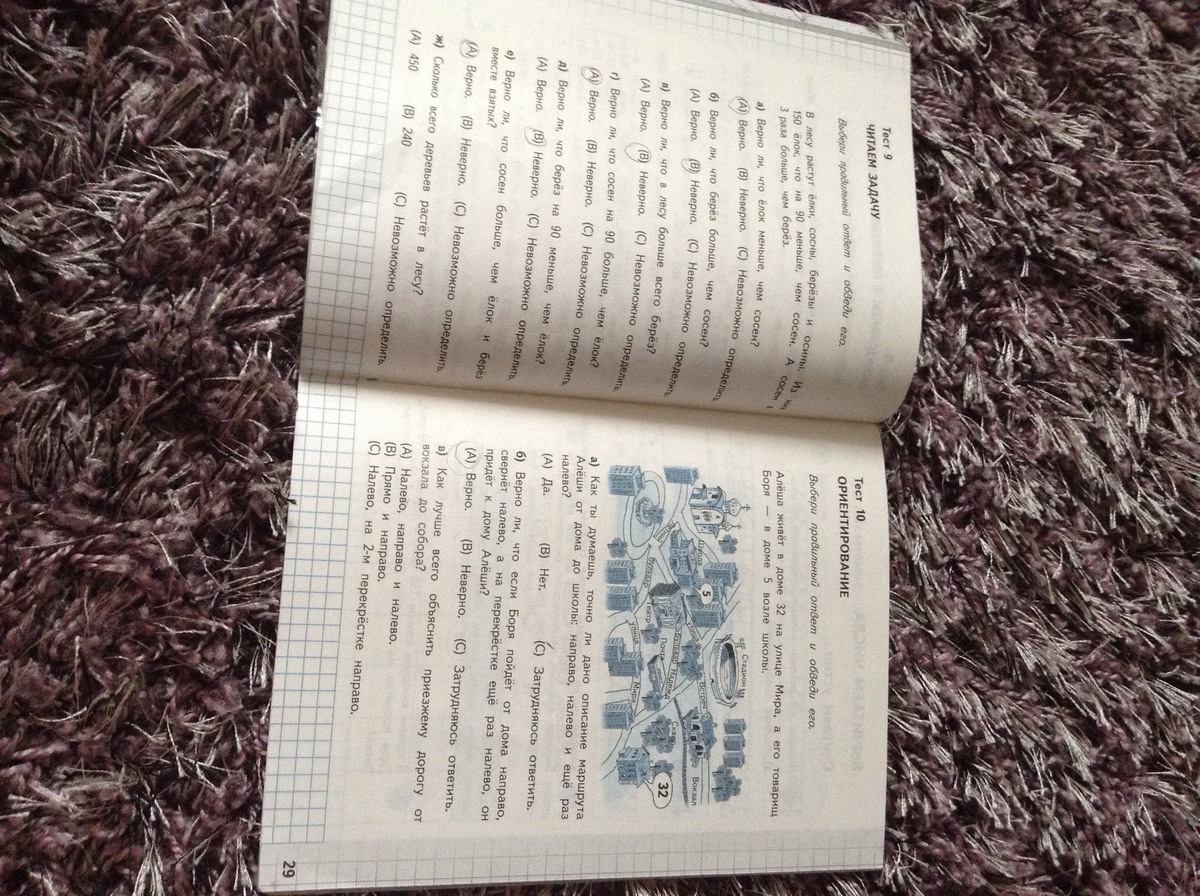 Тест 9
ЧИТАЕМ ЗАДАЧУ
Выбери правильный ответ и обведи его.
В лесу растут ёлки, сосны, берёзы и осины. Из
150 ёлок, что на 90 меньше, чем сосен. А сосен
3 раза больше, чем берёз.
а) Верно ли, что ёлок меньше, чем сосен?
(A) Верно. (B) Неверно. (C) Невозможно определить.
б) Верно ли, что берёз больше, чем сосен?
(A) Верно. (B) Неверно. (C) Невозможно определить.
в) Верно ли, что в лесу больше всего берёз?
(A) Верно. (B) Неверно. (C) Невозможно определить.
г) Верно ли, что сосен на 90 больше, чем ёлок?
(A) Верно. (B) Неверно. (C) Невозможно определить.
д) Верно ли, что берёз на 90 меньше, чем ёлок?
(A) Верно. (B) Неверно. (C) Невозможно определить.
е) Верно ли, что сосен больше, чем ёлок и берёз
вместе взятых?
(A) Верно. (B) Неверно. (C) Невозможно определить.
ж) Сколько всего деревьев растёт в лесу?
(A) 450 (B) 240 (C) Невозможно определить.
Тест 10
ОРИЕНТИРОВАНИЕ
Выбери правильный ответ и обведи его.
Алёша живёт в доме 32 на улице Мира, а его товарищ
Боря — в доме 5 возле школы.
Стадион
Встреч
Вокзал
5
улица
бульвар Надежд
Сквер
32
бульвар
Театр
Почта
улица
Мира
а) Как ты думаешь, точно ли дано описание маршрута
Алёши от дома до школы: направо, налево и ещё раз
налево?
(A) Да. (B) Нет. (C) Затрудняюсь ответить.
б) Верно ли, что если Боря пойдёт от дома направо,
свернёт налево, а на перекрёстке ещё раз налево, он
придёт к дому Алёши?
(A) Верно. (B) Неверно. (C) Затрудняюсь ответить.
в) Как лучше всего объяснить приезжему дорогу от
вокзала до собора?
(A) Налево, направо и налево.
(B) Прямо и направо.
(C) Налево, на 2-м перекрёстке направо.
29